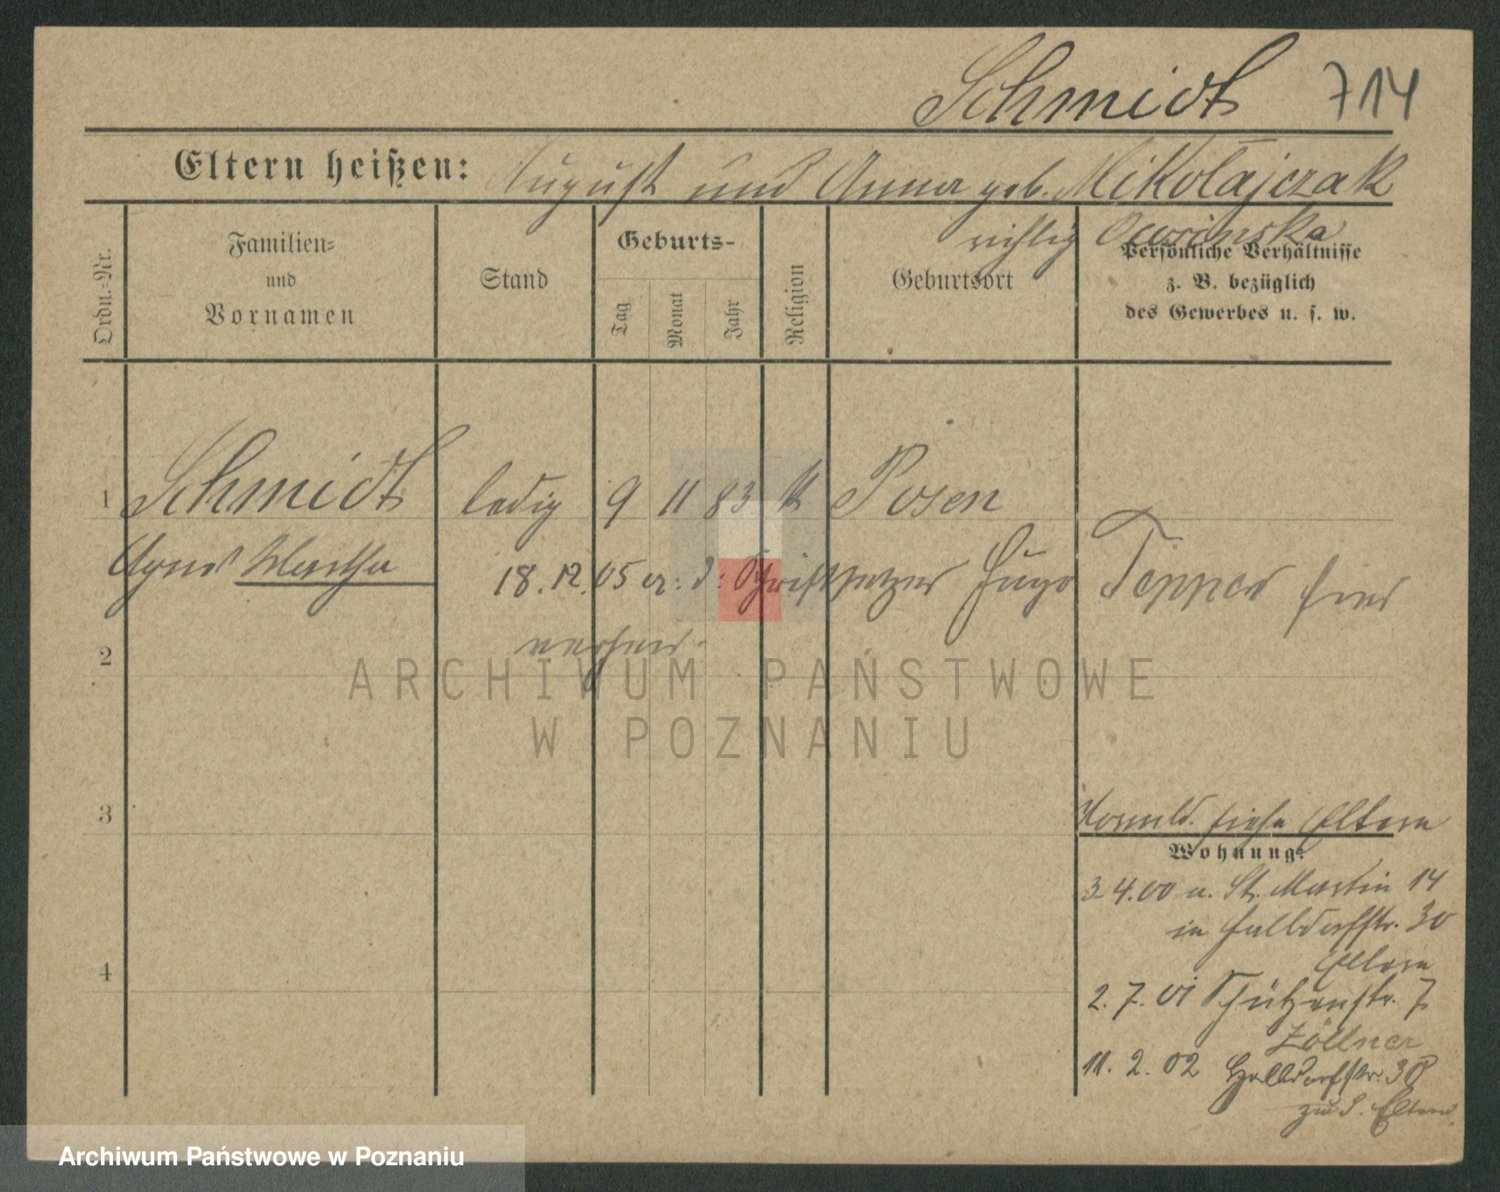 Schmidt 714
Eltern heißen: August und Anna geb. Mikołajczak
richtig Owsinska
Ordn.-Nr.
Familien-
und
Vornamen
Stand
Geburts-
Tag
Monat
Jahr
Religion
Geburtsort
Persönliche Verhältnisse
z. B. bezüglich
des Gewerbes u. s. w.
1 Schmidt ledig 9 11 83 k Posen
Agnes Martha 18.12.05 d: Schriftsetzer Hugo Tepper hier
2
3
Vormld. siehe Eltern
Wohnung:
3.4.00 u. St. Martin 14
in Halldorfstr. 30
Eltern
4
2.7.01 Schützenstr. 7
Zöllner
11.2.02 Halldorfstr. 30
zu d. Eltern
ARCHIWUM PAŃSTWOWE
W POZNANIU
Archiwum Państwowe w Poznaniu